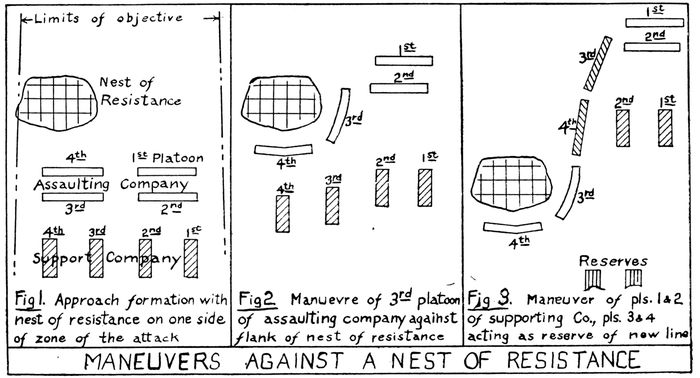 Limits of objective
Nest of
Resistance
4th
1st Platoon
Assaulting Company
3rd
2nd
4th 3rd 2nd 1st
Support Company
Fig 1. Approach formation with
nest of resistance on one side
of zone of the attack
1st
2nd
3rd
4th
4th 3rd 2nd 1st
Fig 2 Manuevre of 3rd platoon
of assaulting company against
flank of nest of resistance
1st
2nd
3rd
4th
2nd 1st
3rd
4th
Reserves
Fig 3. Maneuver of pls. 1&2
of supporting Co., pls. 3&4
acting as reserve of new line
MANEUVERS AGAINST A NEST OF RESISTANCE